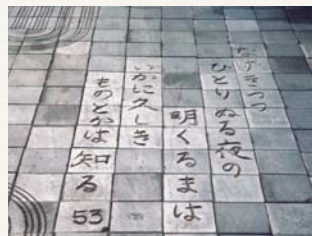 なげきつつ
ひとりぬる夜の
明くるまは
いかに久しき
ものとかは知る
53